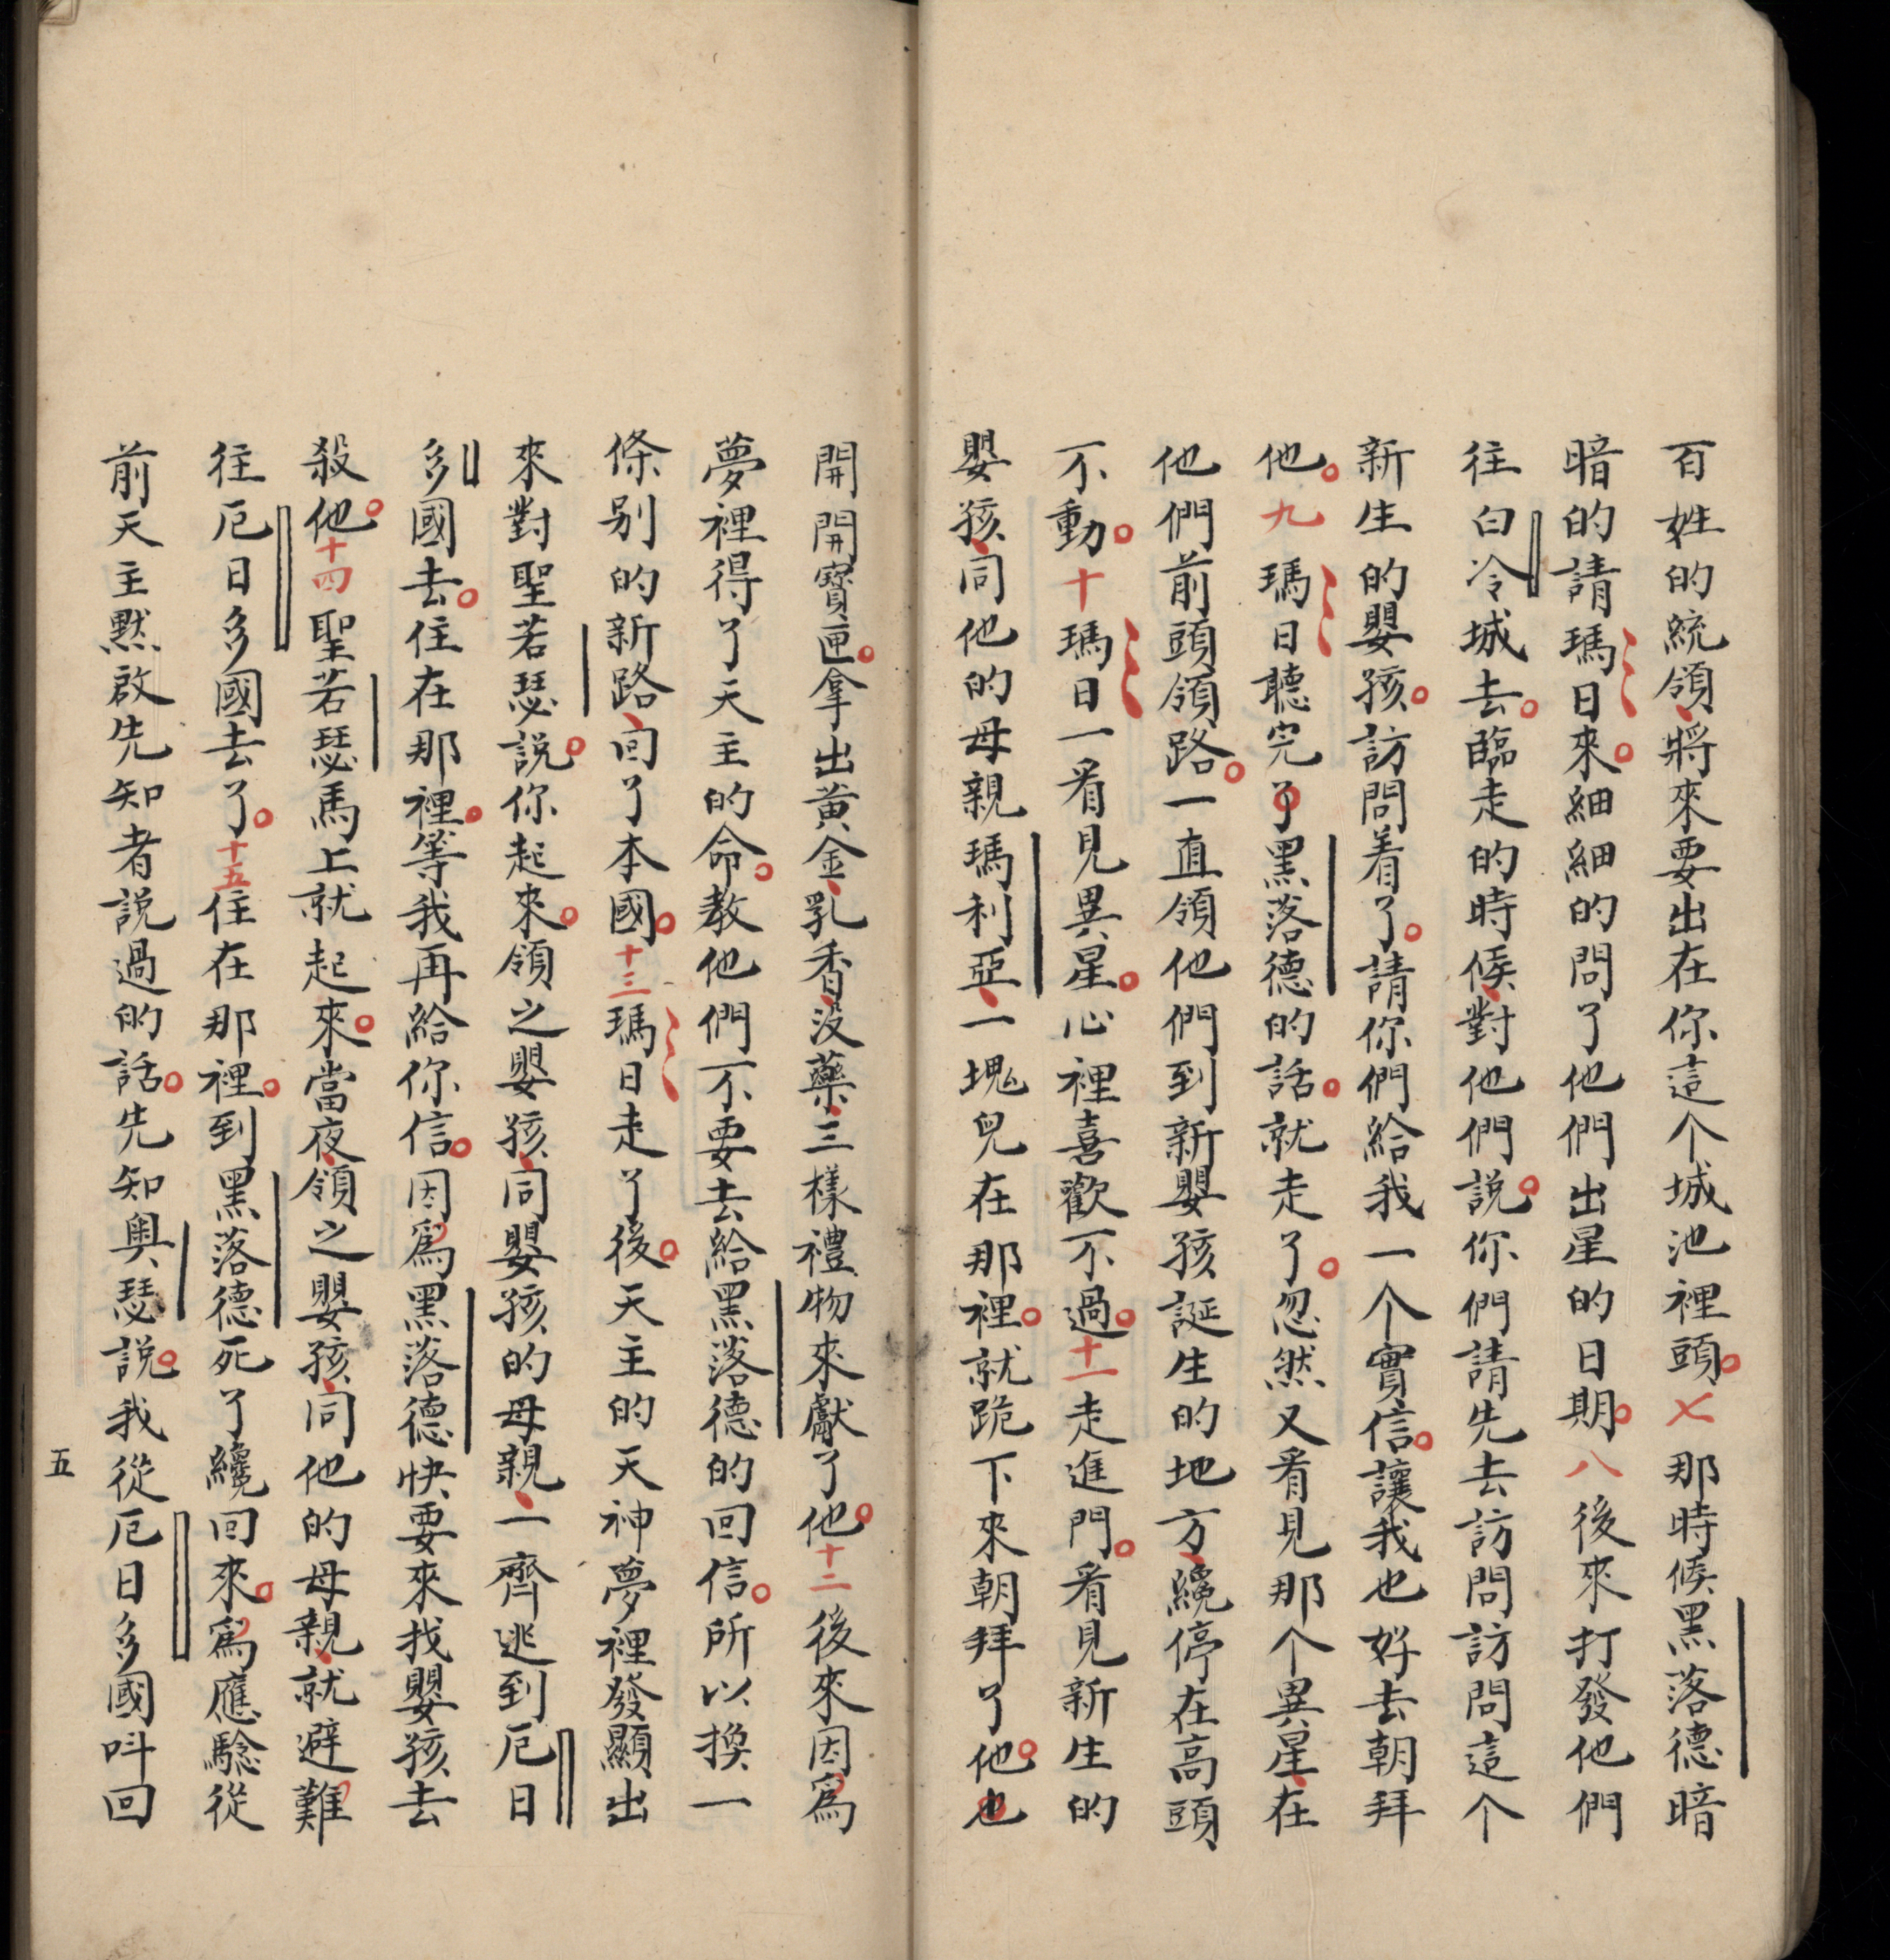 百姓的統領、將來要出在你這个城池裡頭。七那時候黑落德暗
暗的請瑪日來。細細的問了他們出星的日期。八後來打發他們
往白冷城去。臨走的時候、對他們説。你們請先去訪問訪問這个
新生的嬰孩。訪問着了。請你們給我一个實信。讓我也好去朝拜
他。九瑪日聽完了。黑落德的話。就走了。忽然又看見那个異星、在
他們前頭領路。一直領他們到新嬰孩誕生的地方、纔停在高頭
不動。十瑪日一看見異星。心裡喜歡不過。十一走進門。看見新生的
嬰孩、同他的母親瑪利亞、一塊兒在那裡。就跪下來朝拜了他。也
開開寳匣。拿出黄金、乳香、没藥、三樣禮物來獻了他。十二後來因爲
夢裡得了天主的命。教他們不要去給黑落德的回信。所以換一
條别的新路、回了本國。十三瑪日走了後。天主的天神夢裡發顯出
來對聖若瑟説。你起來。領之嬰孩、同嬰孩的母親、一齊逃到厄日
多國去。住在那裡。等我再給你信。因爲黑落德快要來找嬰孩去
殺他。十四聖若瑟馬上就起來。當夜、領之嬰孩、同他的母親、就避難
往厄日多國去了。十五住在那裡。到黑落德死了纔回來。爲應騐從
前天主默啟先知者説過的話。先知奥瑟説。我從厄日多國呌回
五